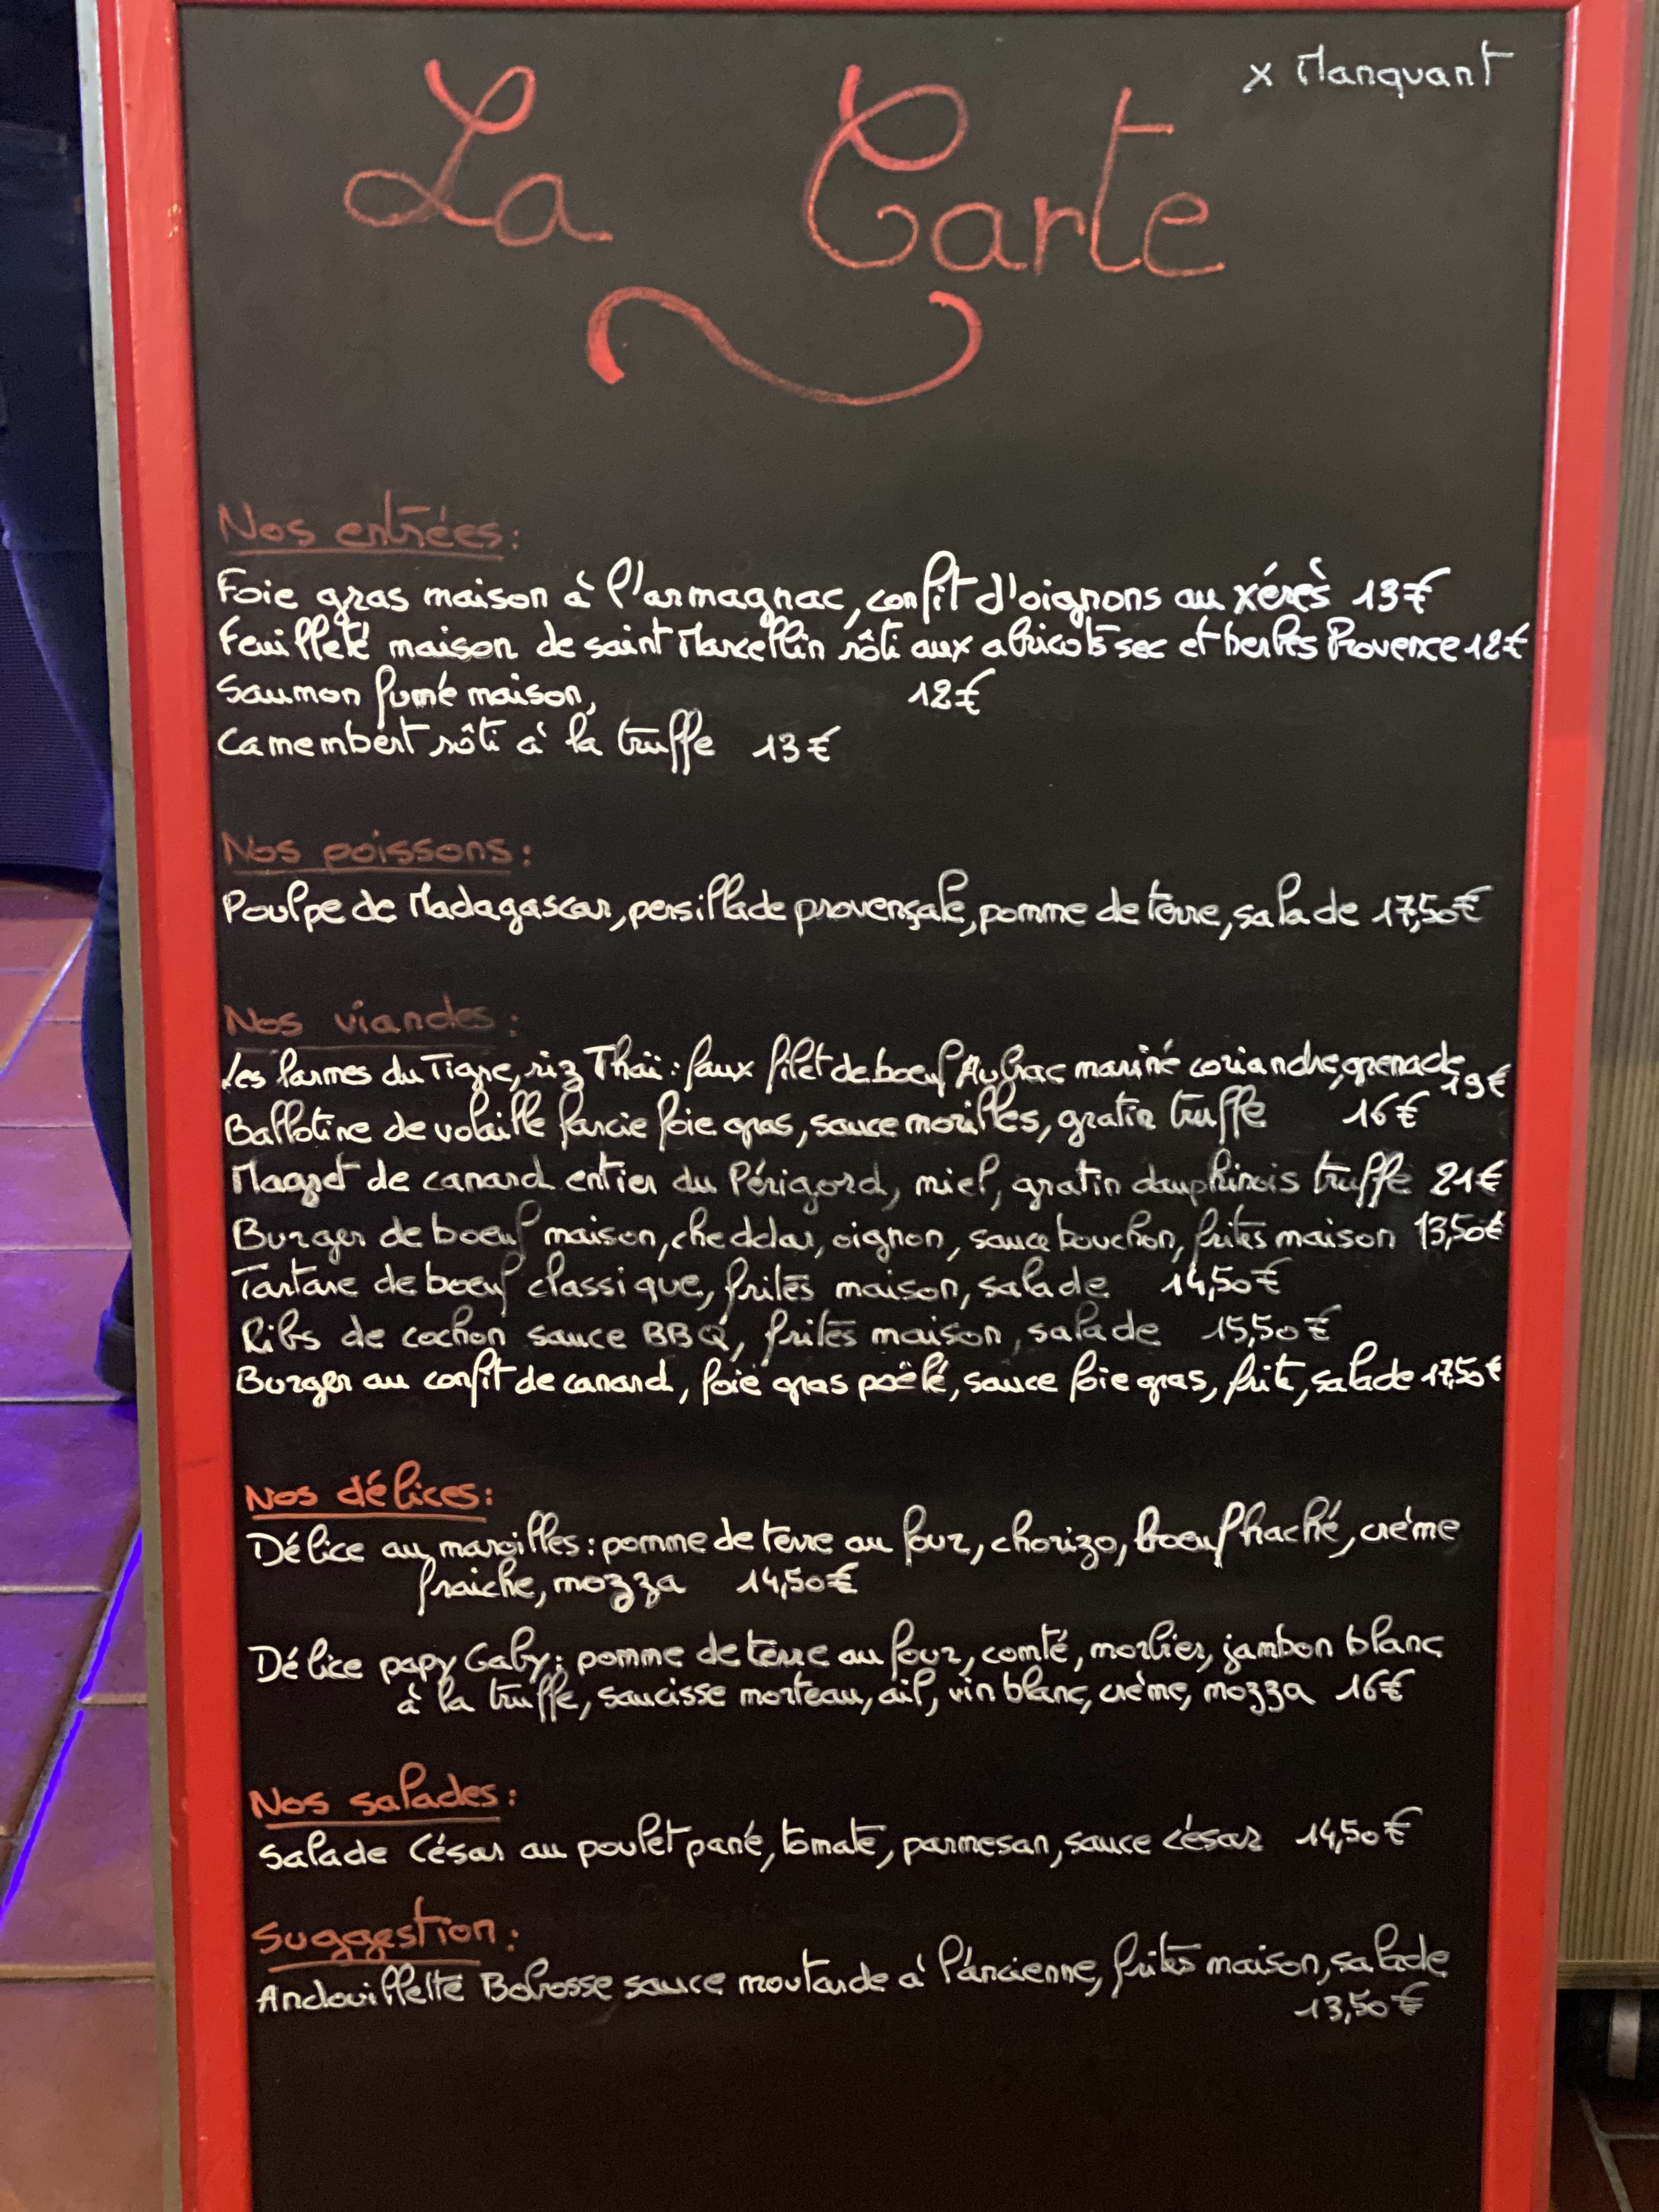 x Manquant
La Carte
Nos entrées:
Foie gras maison à l'armagnac, confit d'oignons au xérès 13€
Feuilleté maison de saint Marcellin rôti aux abricots sec et herbes Provence 12€
Saumon fumé maison, 12€
Camembert rôti à la truffe 13€
Nos poissons:
Poulpe de Madagascar, persillade provençale, pomme de terre, salade 17,50€
Nos viandes:
Les larmes du Tigre, riz Thaï: faux filet de boeuf Aubrac mariné coriandre, grenade 19€
Ballotine de volaille farcie foie gras, sauce morilles, gratin truffe 16€
Magret de canard entier du Périgord, miel, gratin dauphinois truffe 21€
Burger de boeuf maison, cheddar, oignon, sauce bouchon, frites maison 13,50€
Tartare de boeuf classique, frites maison, salade 14,50€
Ribs de cochon sauce BBQ, frites maison, salade 15,50€
Burger au confit de canard, foie gras poëlé, sauce foie gras, frite, salade 17,50€
Nos délices:
Délice au maroilles: pomme de terre au four, chorizo, boeuf haché, crème
fraiche, mozza 14,50€
Délice papy Gaby: pomme de terre au four, comté, morbier, jambon blanc
à la truffe, saucisse morteau, ail, vin blanc, crème, mozza 16€
Nos salades:
Salade César au poulet pané, tomate, parmesan, sauce césar 14,50€
Suggestion:
Andouillette Bobosse sauce moutarde à l'ancienne, frites maison, salade
13,50€